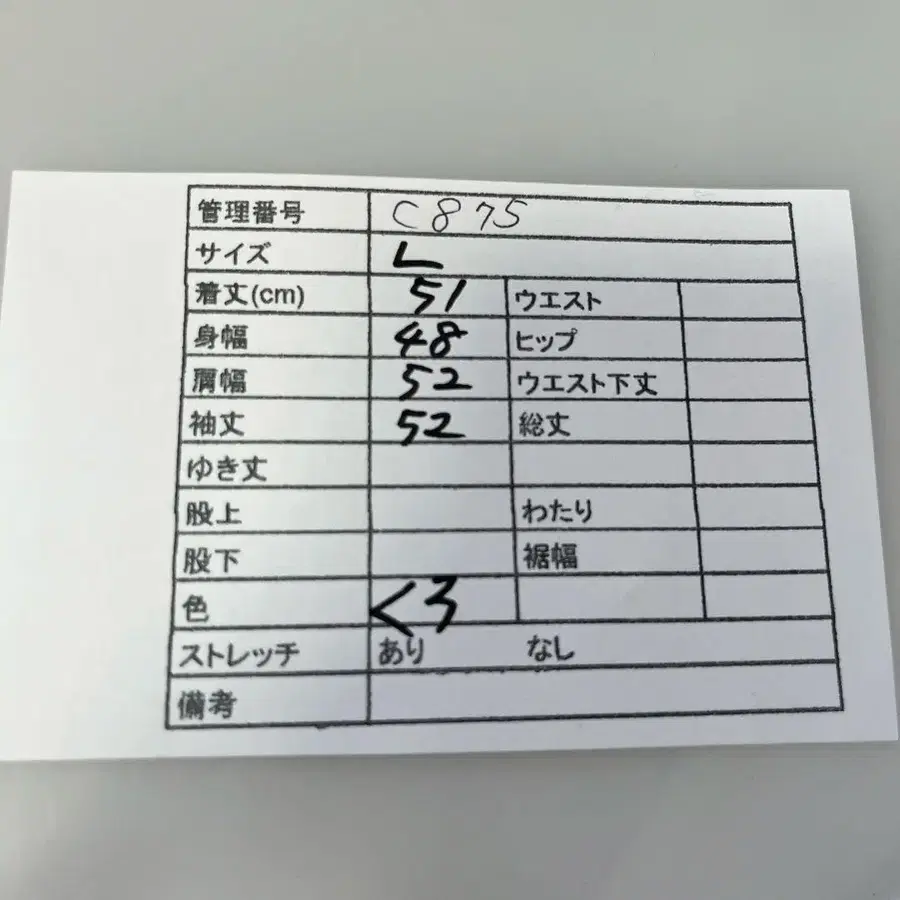 管理番号 C875
サイズ L
着丈(cm) 51 ウエスト
身幅 48 ヒップ
肩幅 52 ウエスト下丈
袖丈 52 総丈
ゆき丈
股上 わたり
股下 裾幅
色 くろ
ストレッチ あり なし
備考